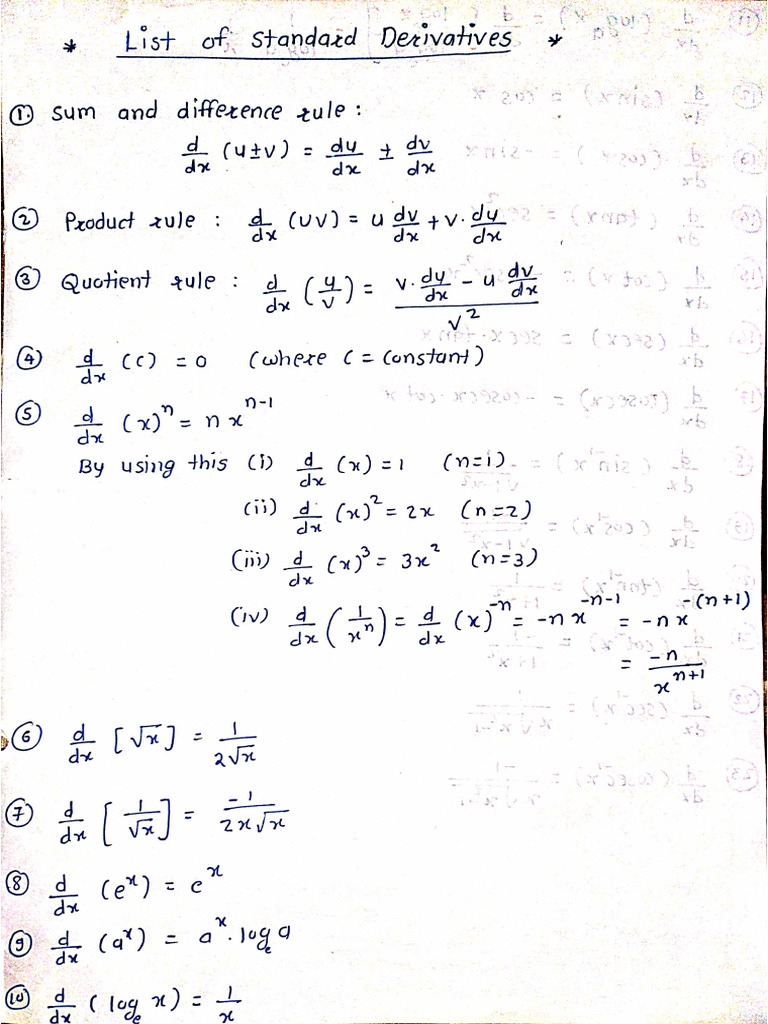 * List of Standard Derivatives *
① Sum and difference rule :
d/dx (u±v) = du/dx ± dv/dx
② Product rule : d/dx (uv) = u dv/dx + v. du/dx
③ Quotient rule : d/dx (u/v) = (v. du/dx - u. dv/dx) / v²
④ d/dx (c) = 0 (where c = constant)
⑤ d/dx (x)ⁿ = n xⁿ⁻¹
By using this (i) d/dx (x) = 1 (n=1)
(ii) d/dx (x)² = 2x (n=2)
(iii) d/dx (x)³ = 3x² (n=3)
(iv) d/dx (1/xⁿ) = d/dx (x)⁻ⁿ = -n x⁻ⁿ⁻¹ = -n x⁻⁽ⁿ⁺¹⁾
= -n/xⁿ⁺¹
⑥ d/dx [√x] = 1/2√x
⑦ d/dx [1/√x] = -1/2x√x
⑧ d/dx (eˣ) = eˣ
⑨ d/dx (aˣ) = aˣ. logₑa
⑩ d/dx (logₑ x) = 1/x